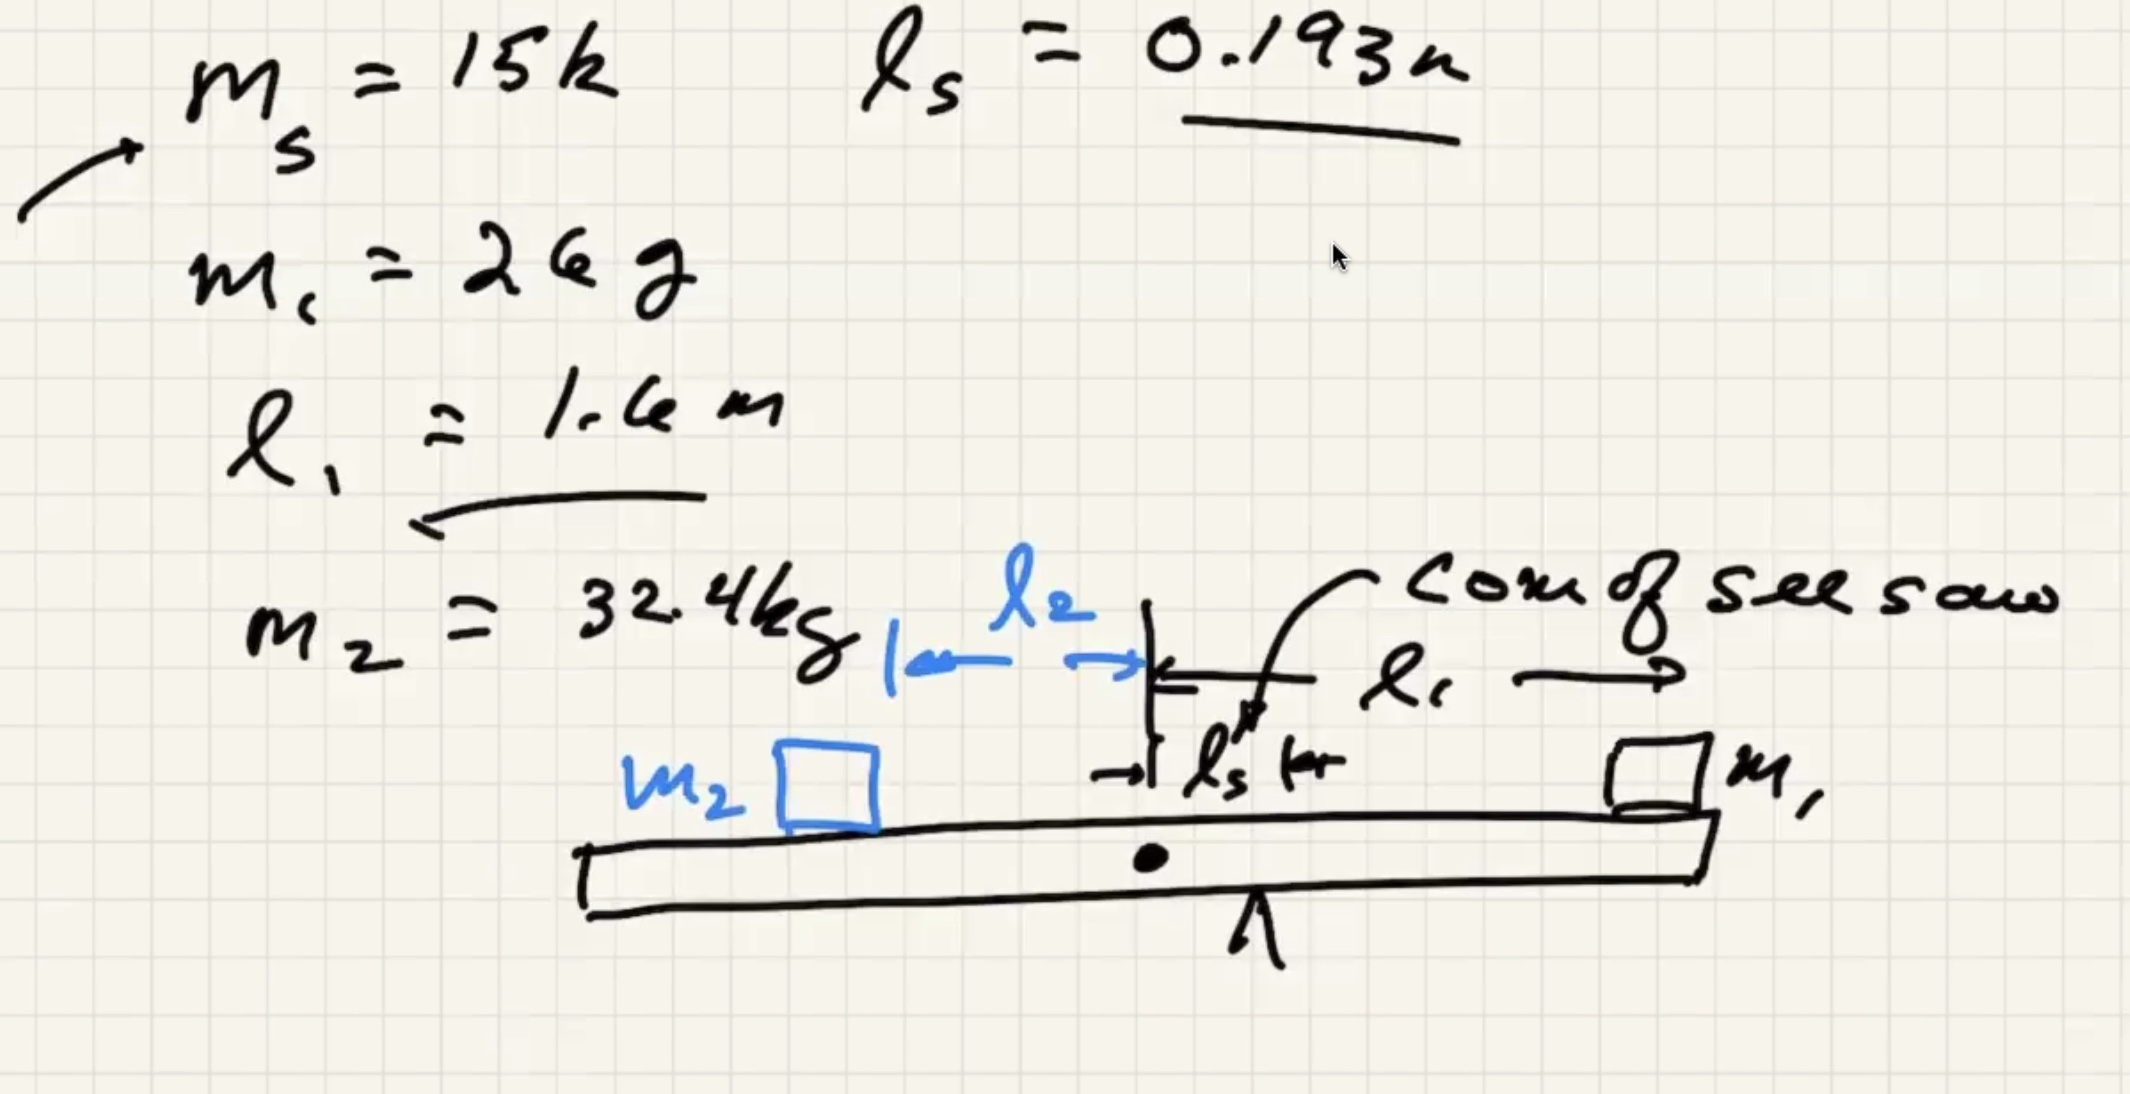 m_s = 15k
l_s = 0.193m
m_1 = 26 g
l_1 = 1.6 m
m_2 = 32.4kg
l_2
Com of see saw
l_1
l_s
m_2
m_1